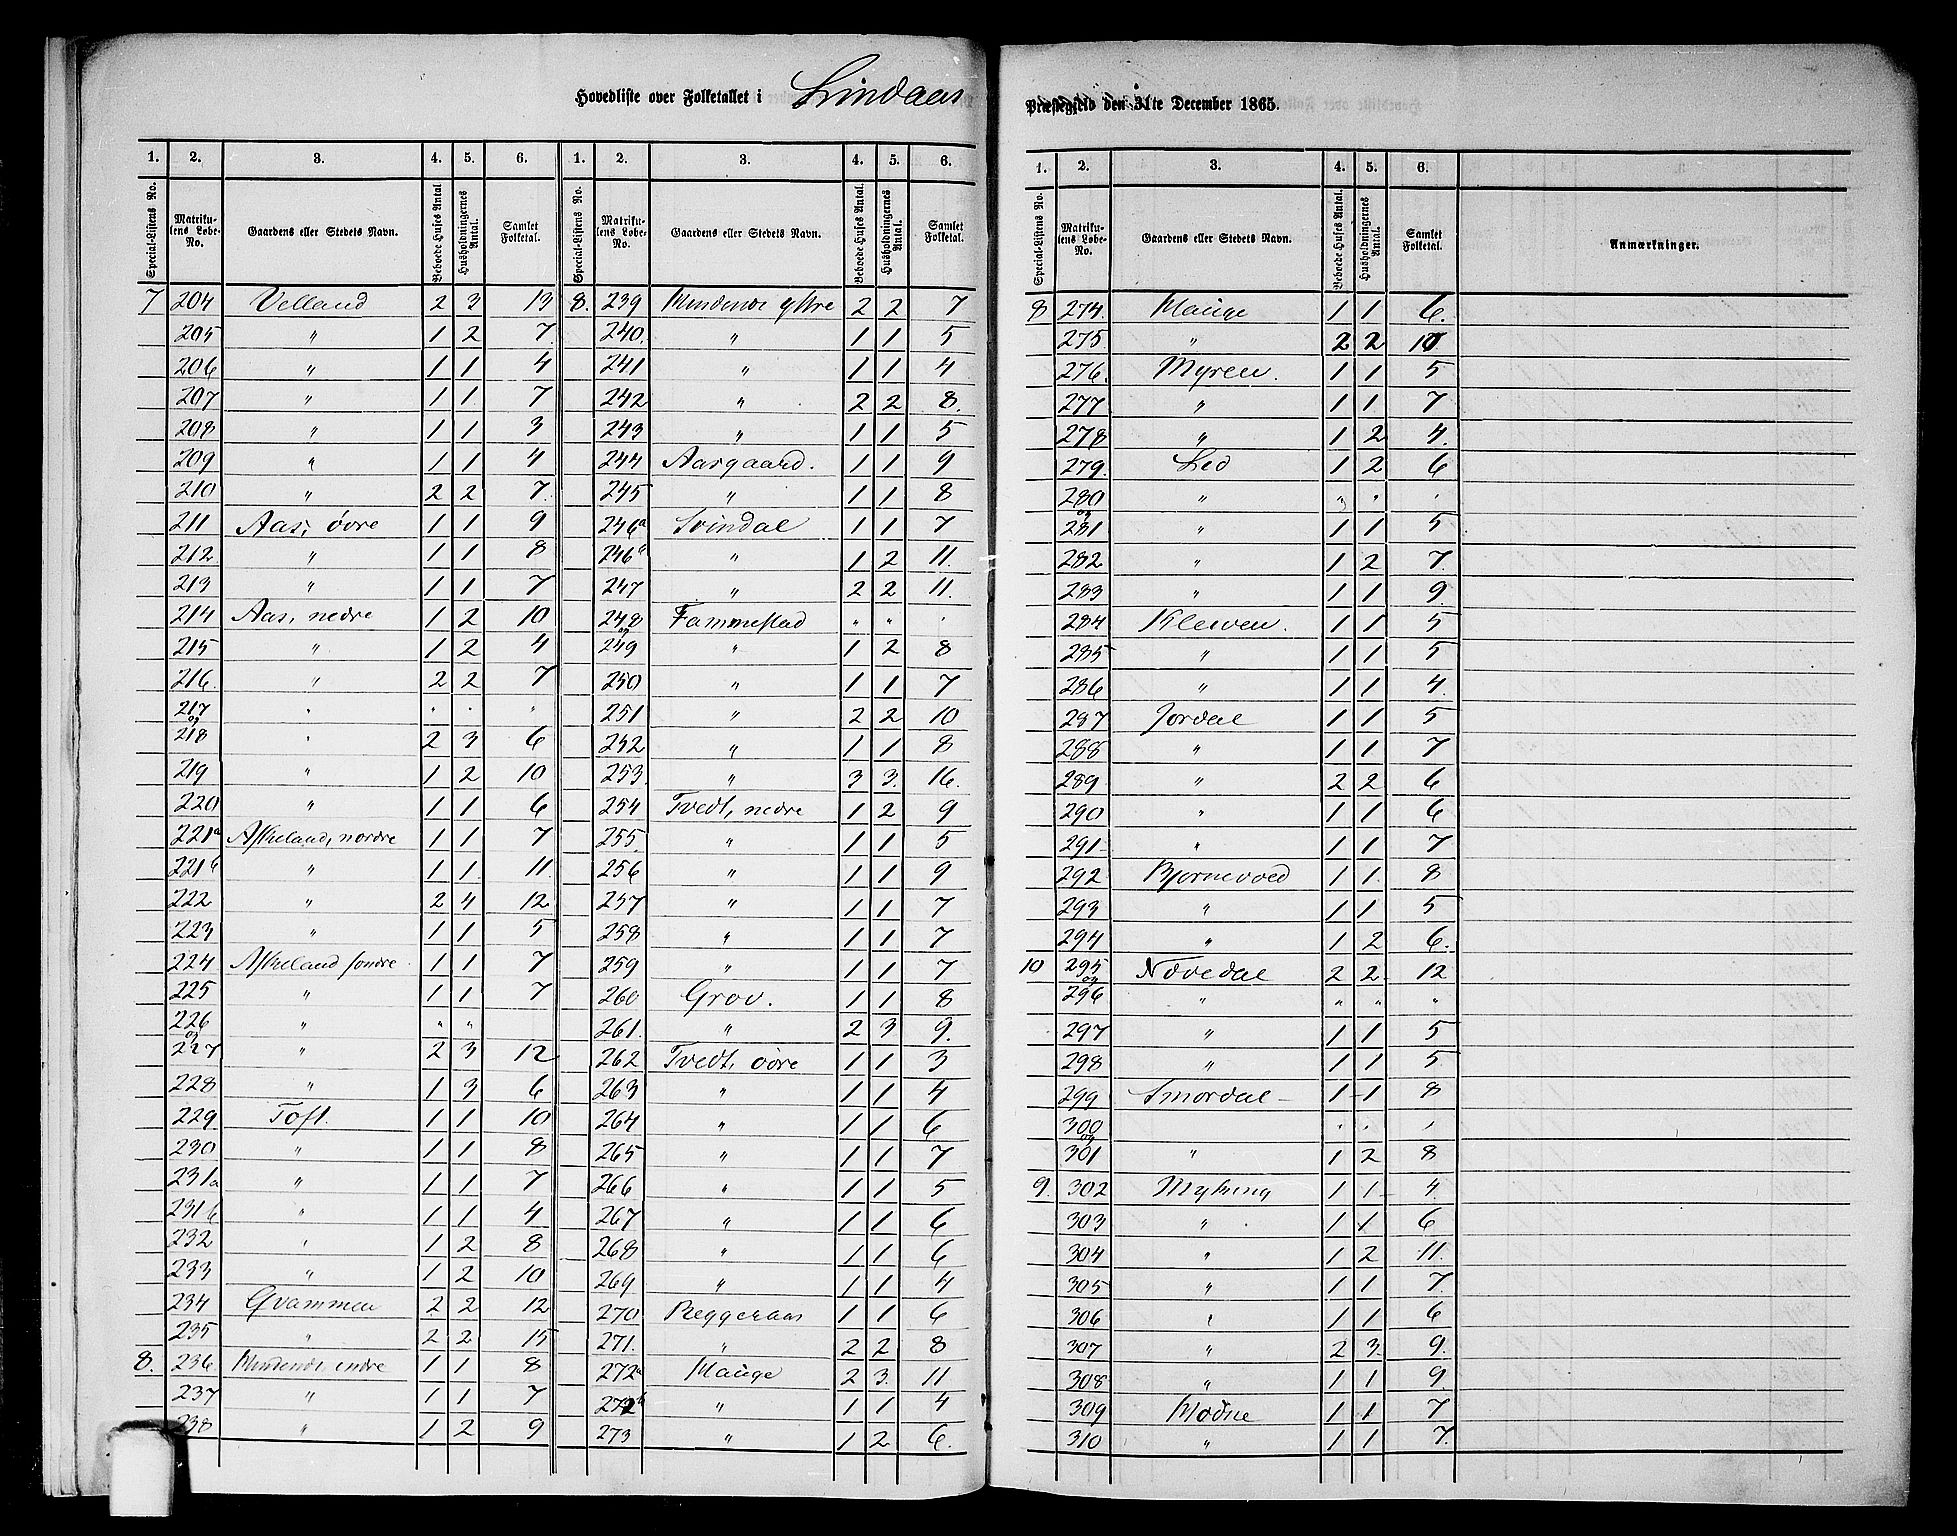 Hovedliste over Folketallet i Lindaas Præstegjeld den 31te December 1865.
1. 2. 3. 4. 5. 6. 1. 2. 3. 4. 5. 6.
Special-Listens No. Matrikulens Løbe-No. Gaardens eller Stedets Navn. Beboede Huses Antal Husholdningernes Antal. Samlet Folketal. Special-Listens No. Matrikulens Løbe-No. Gaardens eller Stedets Navn. Beboede Huses Antal. Husholdningernes Antal. Samlet Folketal.
7 204 Velland 2 3 13
205 " 1 2 7
206 " 1 1 4
207 " 1 1 7
208 " 1 1 3
209 " 1 1 4
210 " 2 2 7
211 Aas, øvre 1 1 9
212 " 1 1 8
213 " 1 1 7
214 Aas, nedre 1 2 10
215 " 1 2 4
216 " 2 2 7
217 " " " "
og
218 " 2 3 6
219 " 1 2 10
220 " 1 1 6
221a Askeland, nordre 1 1 7
221b " 1 1 11
222 " 2 4 12
223 " 1 1 5
224 Askeland søndre 1 1 7
225 " 1 1 7
226 " " "
og
227 " 2 3 12
228 " 1 3 6
229 Toft. 1 1 10
230 " 1 1 8
231a " 1 1 7
231b " 1 1 4
232 " 1 2 8
233 " 1 2 10
234 Qvammen 2 2 12
235 " 2 2 15
8. 236 indre 1 1 8
237 " 1 1 7
238 " 1 2 9
8. 239 yttre 2 2 7
240 " 1 1 5
241 " 1 1 4
242 " 2 2 8
243 " 1 1 5
244 Aasgaard. 1 1 9
245 " 1 1 8
246a Svindal 1 1 7
246b " 1 2 11
247 " 2 2 11
248 Fammestad " " "
og
249 " 1 2 8
250 " 1 1 7
251 " 2 2 10
252 " 1 1 8
253 " 3 3 16
254 Tvedt, nedre 1 2 9
255 " 1 1 5
256 " 1 1 9
257 " 1 1 7
258 " 1 1 7
259 " 1 1 7
260 Grov. 1 1 8
261 " 2 3 9
262 Tvedt, øvre 1 1 3
263 " 1 1 4
264 " 1 1 6
265 " 1 1 7
266 " 1 1 5
267 " 1 1 6
268 " 1 1 6
269 " 1 1 4
270 1 1 6
271 " 2 2 8
272a Hauge 2 3 11
272b " 1 1 4
273 " 1 2 6
1. 2. 3. 4. 5. 6.
Special-Listens No. Matrikulens Løbe-No. Gaardens eller Stedets Navn. Beboede Huses Antal. Husholdningernes Antal. Samlet Folketal. Anmærkninger.
8 274 Hauge 1 1 6
275 " 2 2 10
276 Myren. 1 1 5
277 " 1 1 7
278 " 1 2 4
279 Leo 1 2 6
280 " " " "
og
281 " 1 1 5
282 " 1 2 7
283 " 1 1 9
284 Kleiven. 1 1 5
285 " 1 1 5
286 " 1 1 4
287 Jordal 1 1 5
288 " 1 1 7
289 " 2 2 6
290 " 1 1 6
291 " 1 1 7
292 1 1 8
293 " 1 1 5
294 " 1 2 6
10 295 Nøvedal 2 2 12
og
296 " " " "
297 " 1 1 5
298 " 1 1 5
299 Smørdal 1 1 8
300 " " "
og
301 " 1 2 8
9. 302 Myking 1 1 4
303 " 1 1 6
304 " 1 2 11
305 " 1 1 7
306 " 1 1 6
307 " 2 3 9
308 " 1 1 9
309 1 1 7
310 " 1 1 7